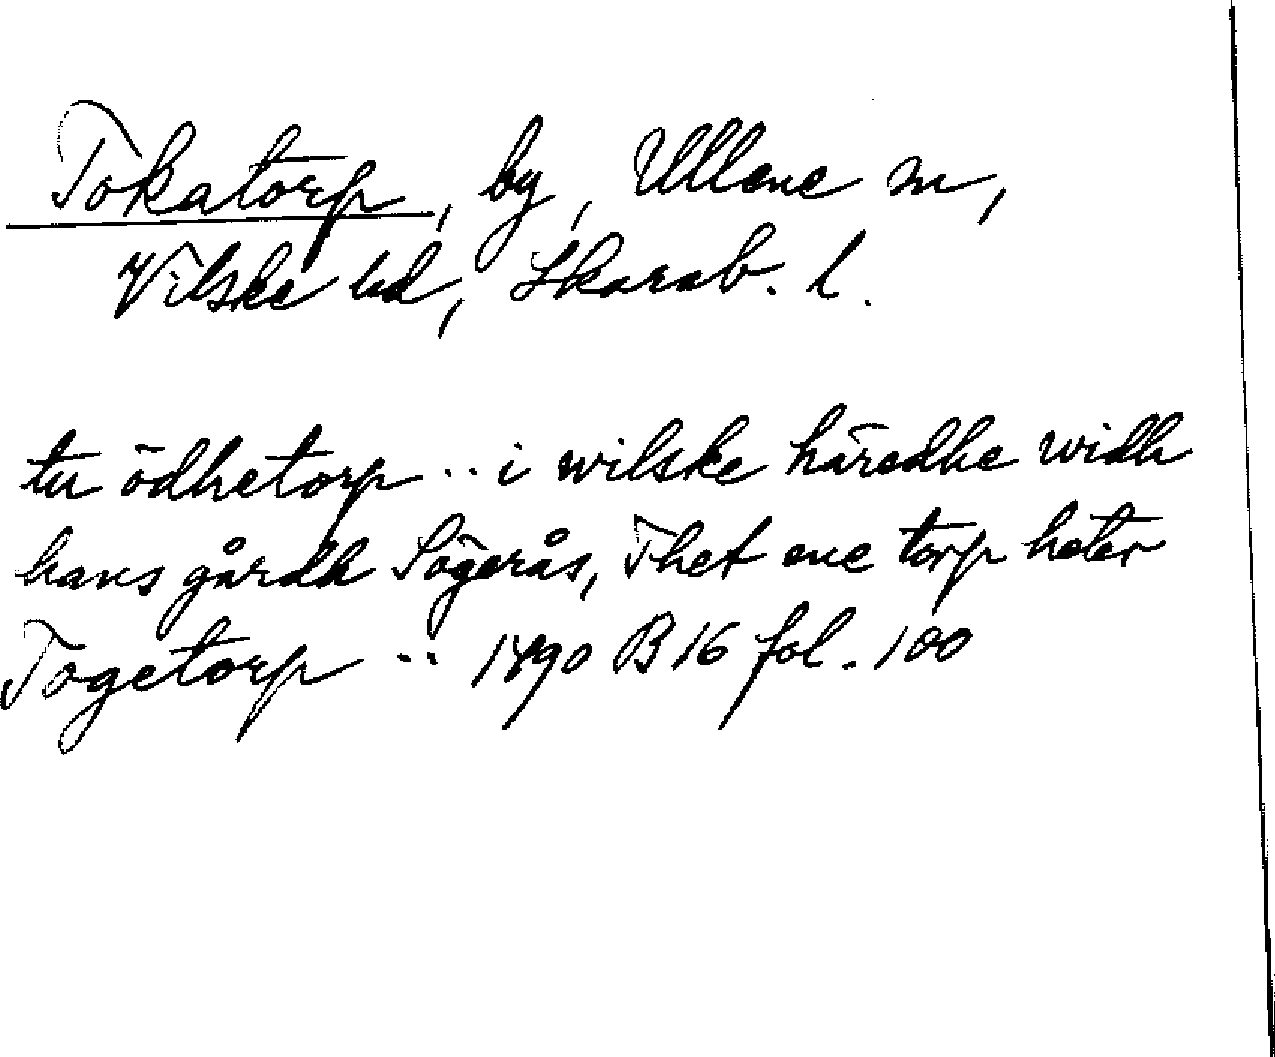 Tokatorp, by, Ullene sn,
Vilske hd, Skarab. l.
tu ödhetorp .. i wilske häredhe widh
hans gårdh Sögerås, Thet ene torp heter
Togetorp .. 1490 B 16 fol. 100